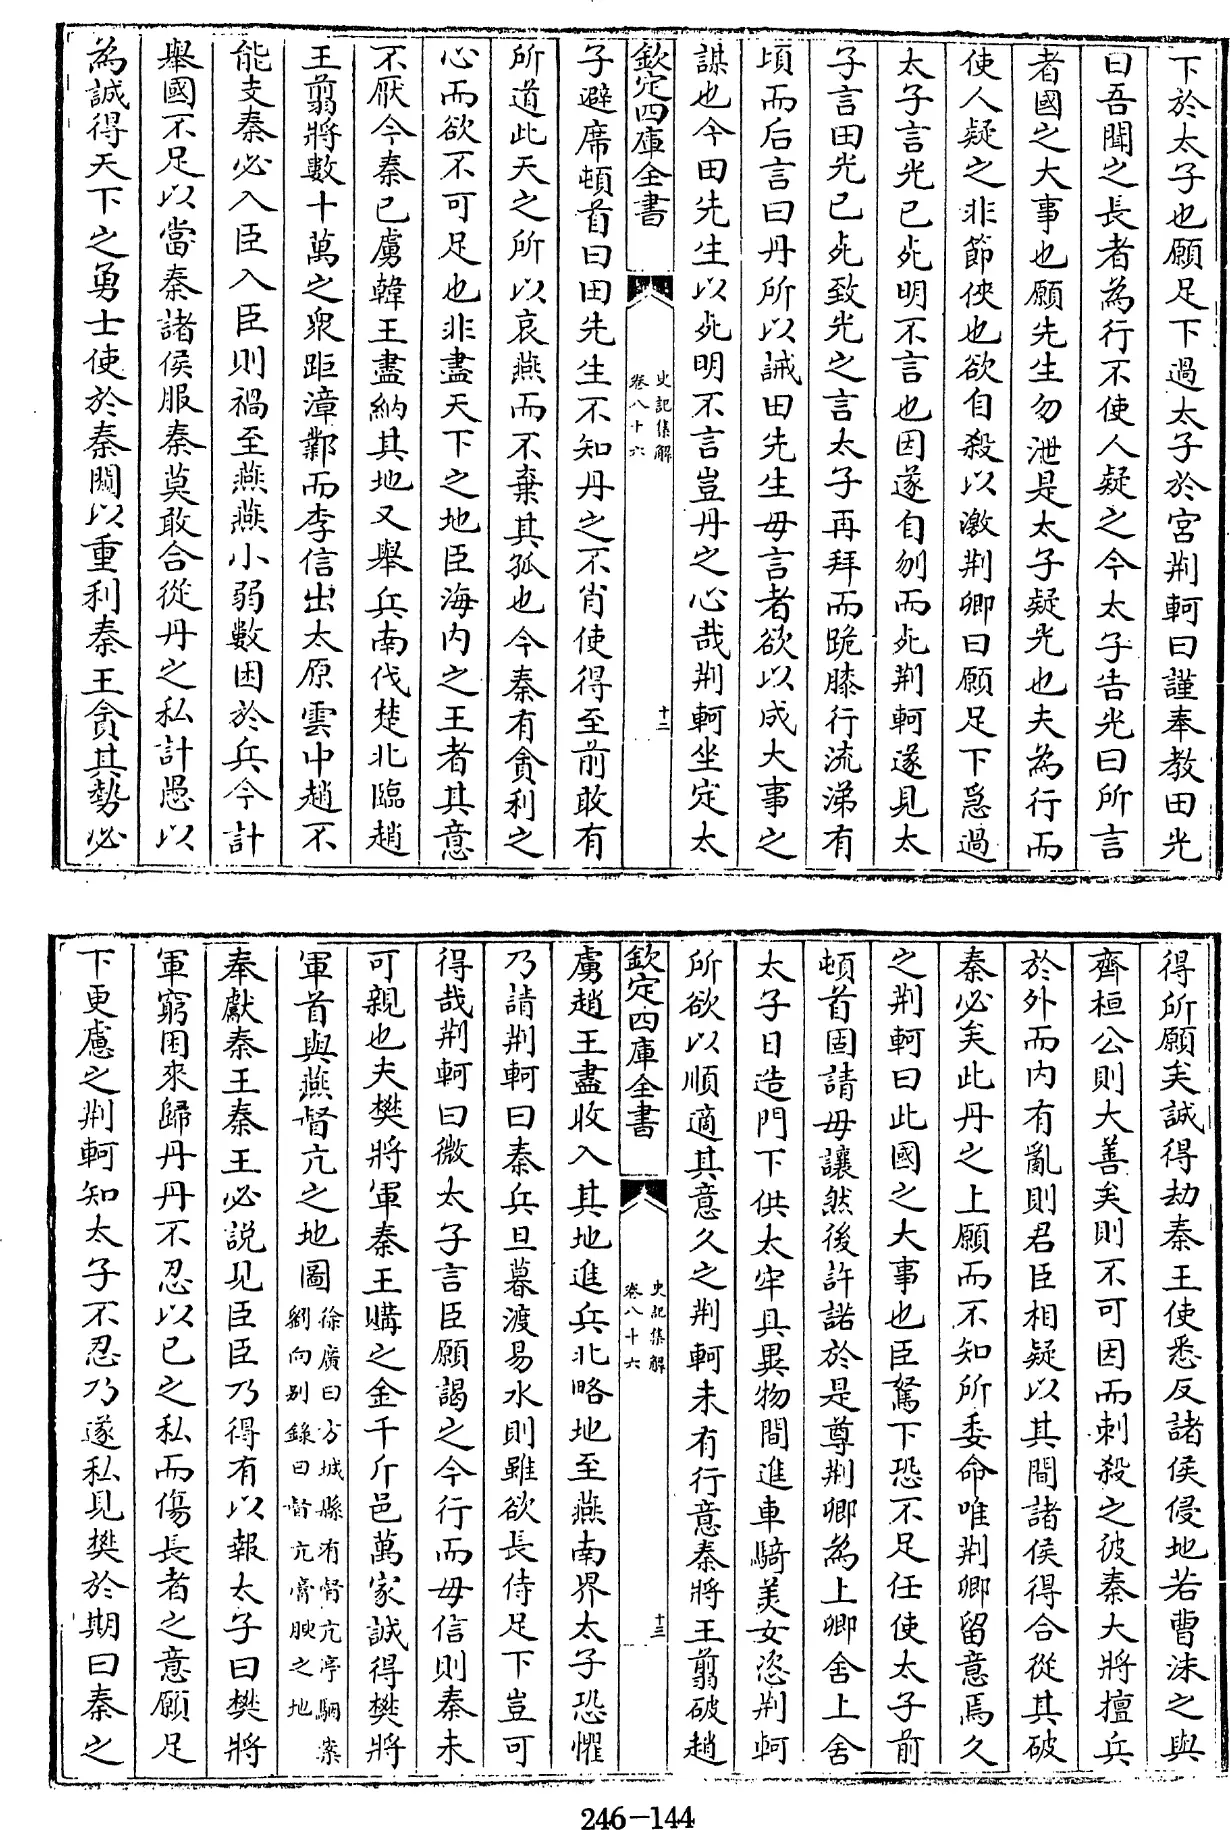 下於太子也願足下過太子於宮荆軻曰謹奉教田光
曰吾聞之長者為行不使人疑之今太子告光曰所言
者國之大事也願先生勿泄是太子疑光也夫為行而
使人疑之非節俠也欲自殺以激荆卿曰願足下急過
太子言光已死明不言也因遂自刎而死荆軻遂見太
子言田光已死致光之言太子再拜而跪膝行流涕有
頃而后言曰丹所以誡田先生毋言者欲以成大事之
謀也今田先生以死明不言豈丹之心哉荆軻坐定太
欽定四庫全書
史記集解
卷八十六
十二
子避席頓首曰田先生不知丹之不肖使得至前敢有
所道此天之所以哀燕而不棄其孤也今秦有貪利之
心而欲不可足也非盡天下之地臣海內之王者其意
不厭今秦已虜韓王盡納其地又舉兵南伐楚北臨趙
王翦將數十萬之衆距漳鄴而李信出太原雲中趙不
能支秦必入臣入臣則禍至燕燕小弱數困於兵今計
舉國不足以當秦諸侯服秦莫敢合從丹之私計愚以
為誠得天下之勇士使於秦闚以重利秦王貪其勢必
得所願矣誠得劫秦王使悉反諸侯侵地若曹沬之與
齊桓公則大善矣則不可因而刺殺之彼秦大將擅兵
於外而內有亂則君臣相疑以其間諸侯得合從其破
秦必矣此丹之上願而不知所委命唯荆卿留意焉久
之荆軻曰此國之大事也臣駑下恐不足任使太子前
頓首固請毋讓然後許諾於是尊荆卿為上卿舍上舍
太子日造門下供太牢具異物間進車騎美女恣荆軻
所欲以順適其意久之荆軻未有行意秦將王翦破趙
欽定四庫全書
史記集解
卷八十六
十三
虜趙王盡收入其地進兵北略地至燕南界太子恐懼
乃請荆軻曰秦兵旦暮渡易水則雖欲長侍足下豈可
得哉荆軻曰微太子言臣願謁之今行而毋信則秦未
可親也夫樊將軍秦王購之金千斤邑萬家誠得樊將
軍首與燕督亢之地圖徐廣曰方城縣有督亢亭駰案
劉向别錄曰督亢膏腴之地
奉獻秦王秦王必説見臣臣乃得有以報太子曰樊將
軍窮困來歸丹丹不忍以己之私而傷長者之意願足
下更慮之荆軻知太子不忍乃遂私見樊於期曰秦之
246-144